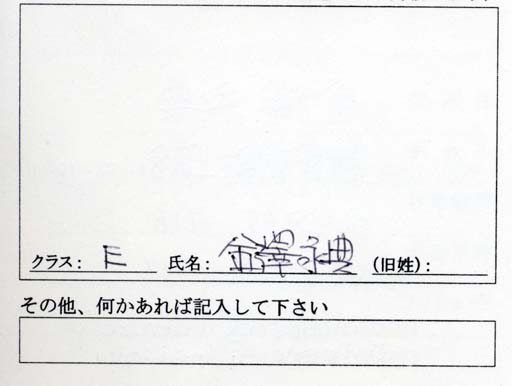 クラス: E 氏名: 金澤永典 (旧姓):
その他、何かあれば記入して下さい